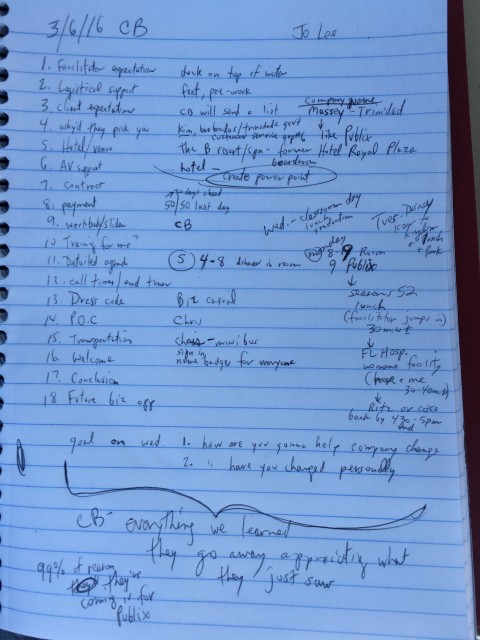 3/6/16 CB
Jo Lee
1. Facilitator expectation duck on top of water
2. Logistical support fact, pre-work
3 Client expectation CB will send a list
company name
Massey - Trinidad
4. why'd they pick you Kim, barbados/trinidad govt
customer service
→ like Publix
5. Hotel/venue the B resort/spa - former Hotel Royal Plaza
6. AV support hotel - boardroom
Create power point
7. contract
8. payment 50/50 last day
9. workbook/slides CB
10 Training for me?
11. Detailed agenda (S) 4-8 dinner in room
12. call time/end time
13. Dress code Biz casual
14. P.O.C Chris
15. Transportation chris - mini bus
16. Welcome sign in
name badges for everyone
17. Conclusion
18 Future biz opp
wed. - classroom day
lunch
graduation
Tues - Disney
lunch
+ park
monday
8-9 Room
9 Publix
↓
seasons 52
lunch
(facilitator jumps in)
30 minute
↓
FL Hosp.
womens facility
+ me
30-40 min)
↓
Ritz or
back by 430-5pm
end
goal on wed 1. how are you gonna help company change
2. " have you changed personally
CB - everything we learned
they go away appreciating what
they just saw
99% of reason
they're
coming is for
Publix